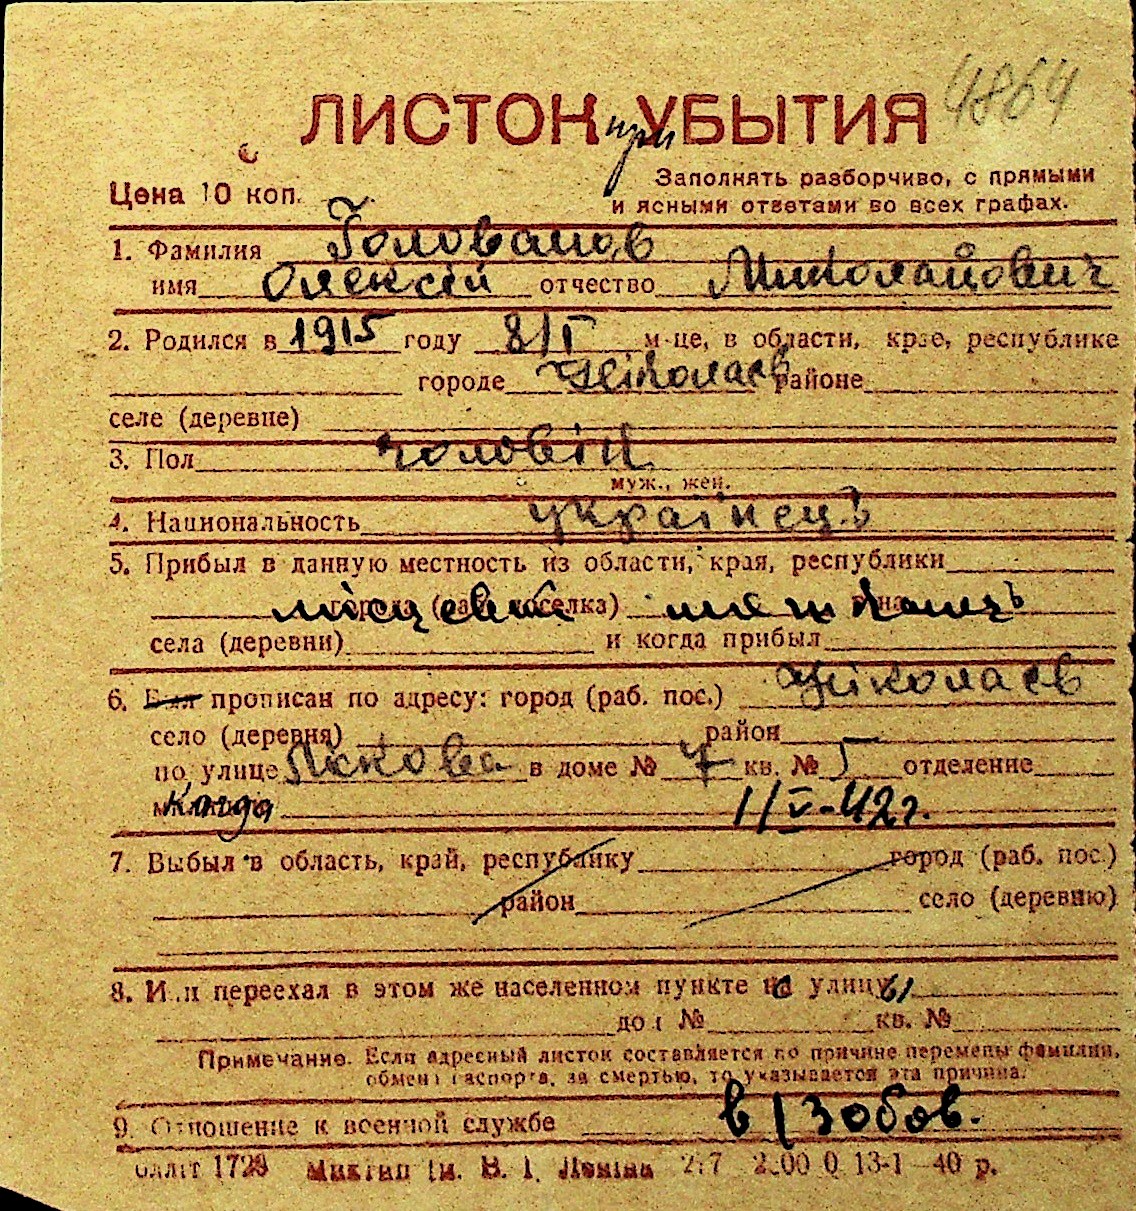 4864
ЛИСТОК при УБЫТИЯ
Цена 10 коп.
Заполнять разборчиво, с прямыми
и ясными ответами во всех графах.
1. Фамилия Голованов
имя Олексій отчество Миколайович
2. Родился в 1915 году 8/I м-це, в области, крае, республике
городе Ніколаев районе
селе (деревне)
3. Пол чоловік
муж., жен.
4. Национальность українець
5. Прибыл в данную местность из области, края, республики
города (раб. поселка) місцевий мешканець
села (деревни) и когда прибыл
6. Был прописан по адресу: город (раб. пос.) Ніколаев
село (деревня) район
по улице в доме № 7 кв. № 5 отделение
Когда 1/V-42г.
7. Выбыл в область, край, республику город (раб. пос.)
район село (деревню)
8. Или переехал в этом же населенном пункте на улицу
дом № кв. №
Примечание. Если адресный листок составляется по причине перемены фамилии,
обмена паспорта, за смертью, то указывается эта причина.
9. Отношение к военной службе в/зобов.
1729 ім. В. І. Леніна 13-I—40 р.